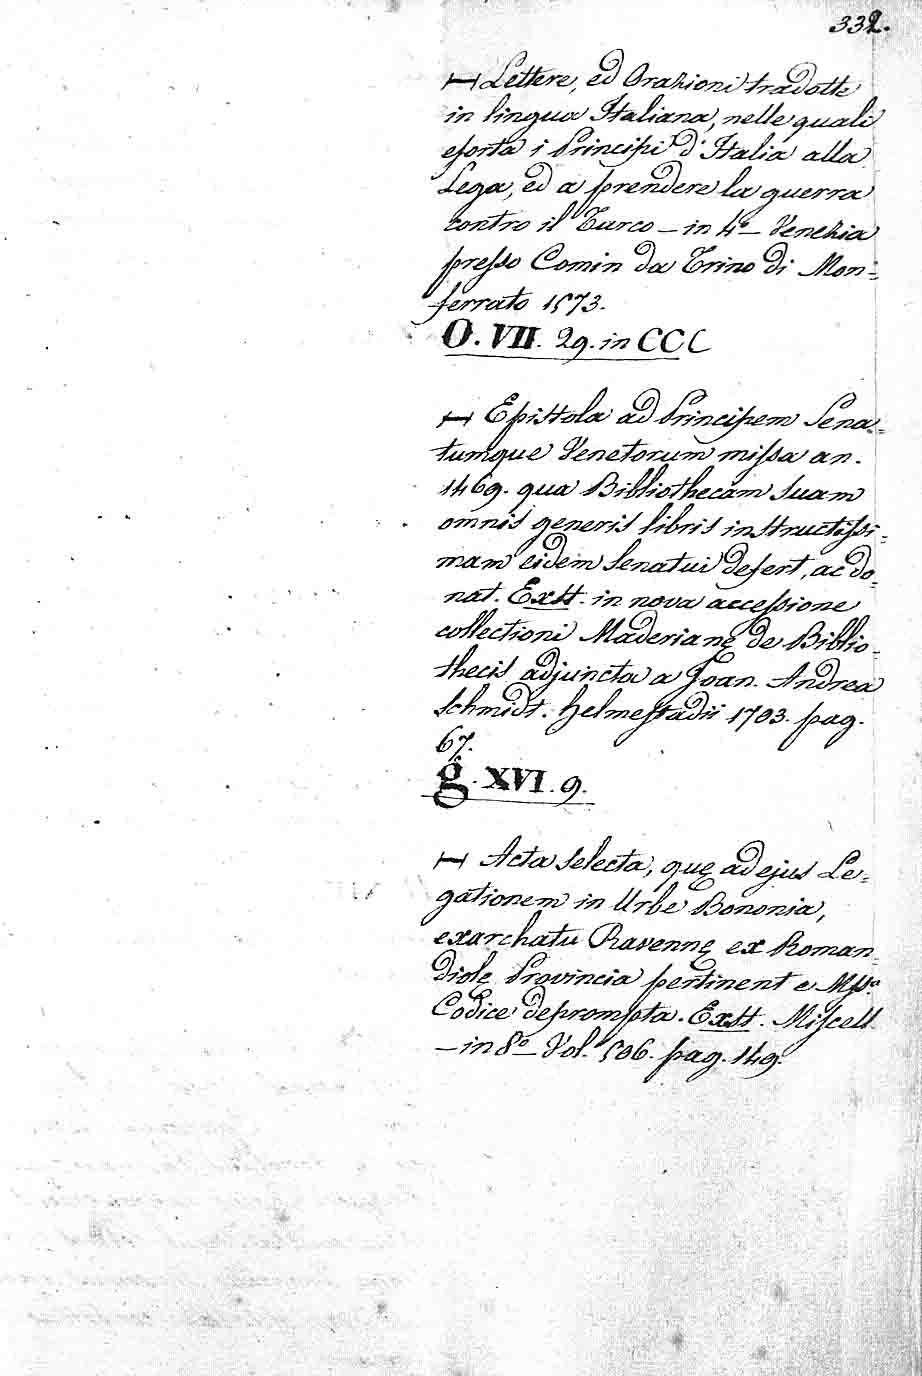 332.
— Lettere, ed Orazioni tradotte
in lingua Italiana, nelle quali
esorta i Principi d'Italia alla
Lega, ed a prendere la guerra
contro il Turco – in 4° – Venezia
presso Comin da Trino di Mon=
ferrato 1573.
O. VII. 29. in CCC
— Epistola ad Principem Sena=
tumque Venetorum missa an.
1469. qua Bibliothecam suam
omnis generis libris instructissi=
mam eidem Senatui defert, ac do=
nat. Exst. in nova accessione
collectioni Maderianę de Biblio=
thecis adjuncta a Joan. Andrea
Schmidt. Helmestadii 1703. pag.
67.
g. XVI. 9.
— Acta selecta, quę ad ejus Le=
gationem in Urbe Bononia,
exarchatu Ravennę ex Roman=
diolę Provincia pertinent e Mss.°
Codice deprompta. Exst. Miscell.
– in 8° – Vol. 506. pag. 149.